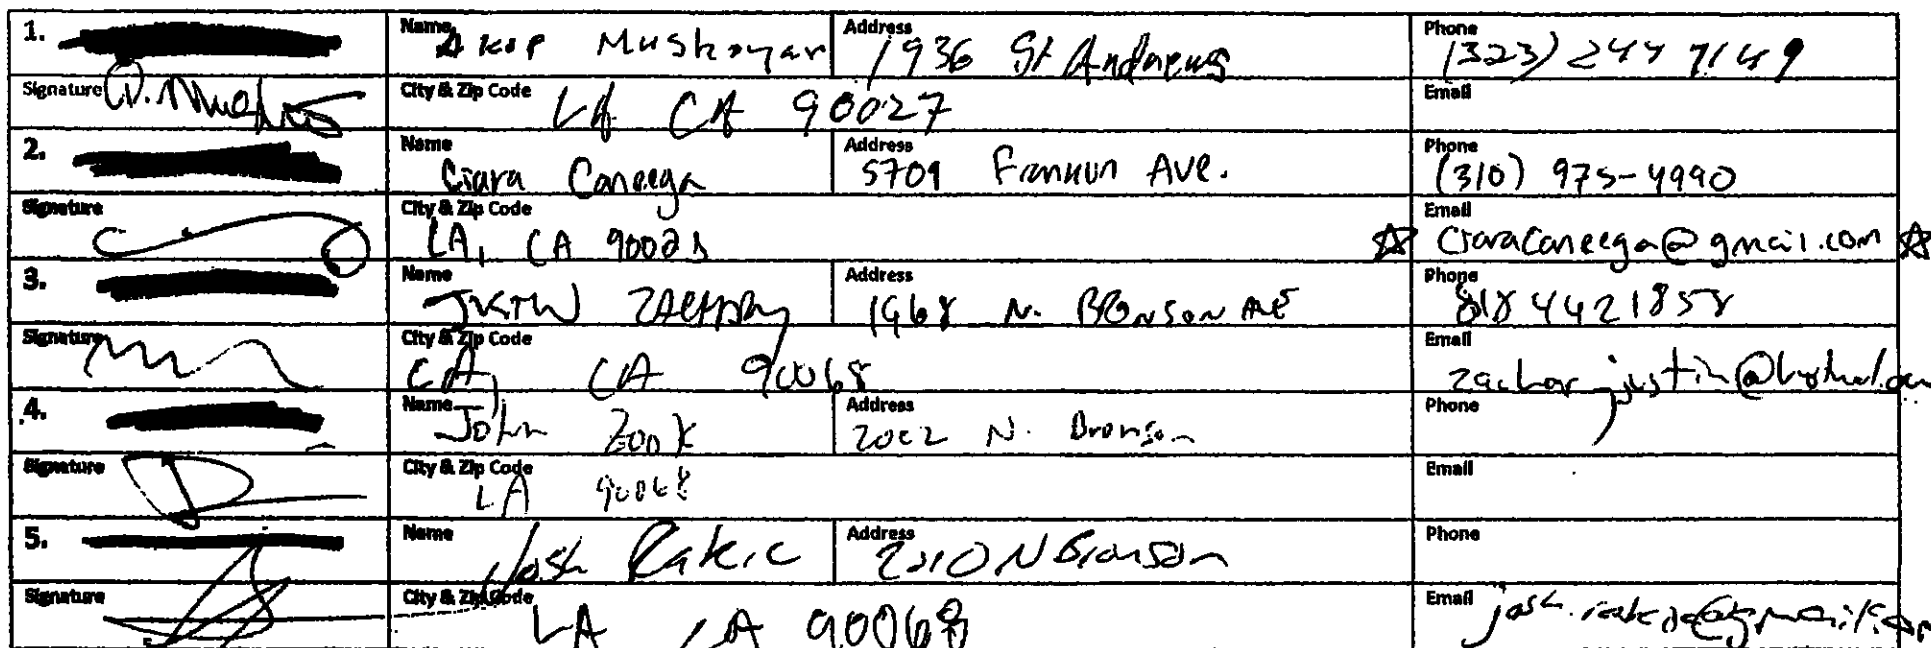 1. Name Akop Muskoyan Address 1936 St Andrews Phone (323) 244 7149
Signature City & Zip Code LA CA 90027 Email
2. Name Ciara Caneega Address 5709 Franklin Ave. Phone (310) 975-4990
Signature City & Zip Code LA, CA 90028 Email ☆ CiaraCaneega@gmail.com ☆
3. Name ZACHARY Address 1968 N. BRONSON AVE Phone 818 4421858
Signature City & Zip Code CA 90068 Email
4. Name John Zook Address 2002 N. Bronson Phone
Signature City & Zip Code LA 90068 Email
5. Name Josh Rakic Address 2010 N Bronson Phone
Signature City & Zip Code LA CA 90068 Email josh.rakic@gmail.com